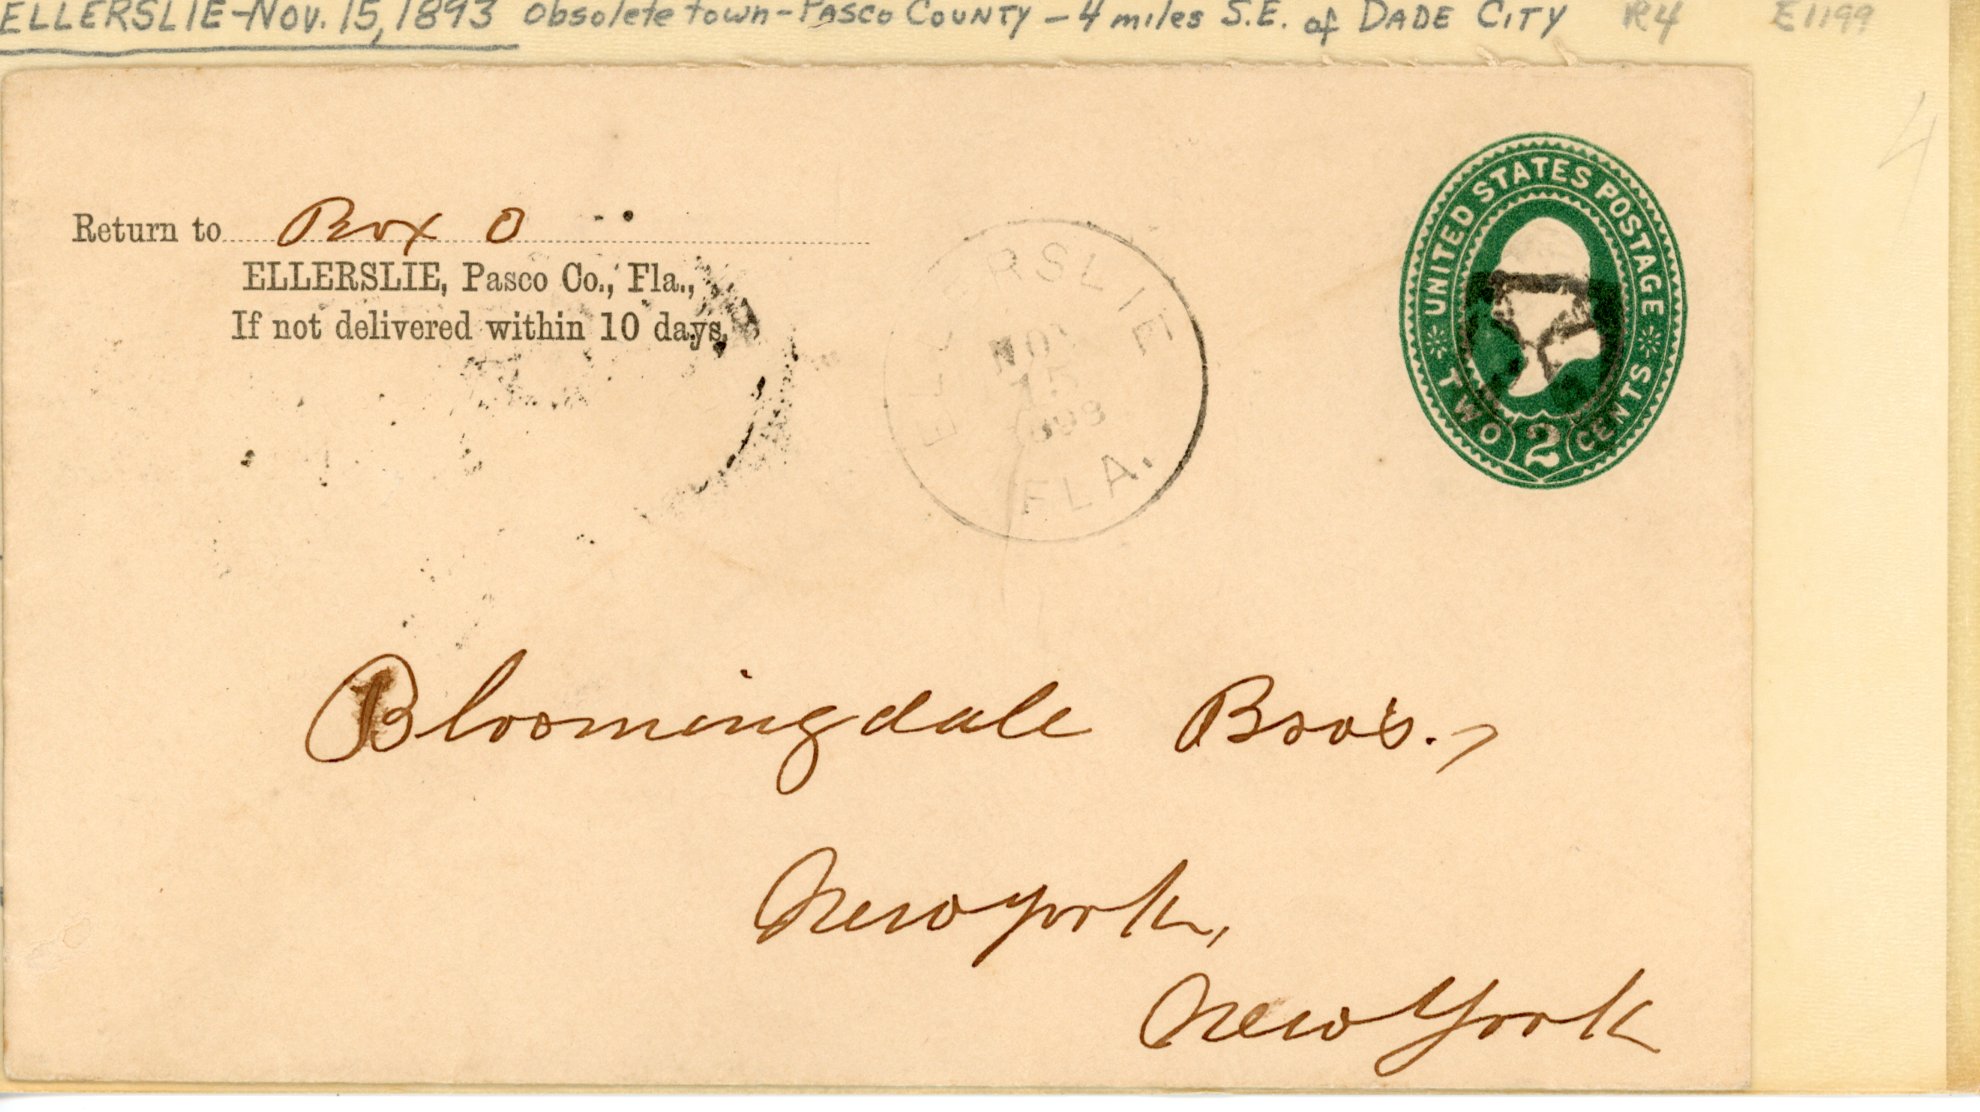 ELLERSLIE-Nov. 15, 1893 obsolete town - Pasco County - 4 miles S.E. of DADE CITY R4 E1199
4
Return to Box O
ELLERSLIE, Pasco Co., Fla.,
If not delivered within 10 days.
ELLERSLIE
NOV
15
1893
FLA.
UNITED STATES POSTAGE
TWO 2 CENTS
Bloomingdale Bro's.,
New York,
New York